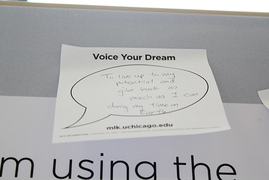 Voice Your Dream
To live up to my
potential and
give back as
much as I can
during my time on
Earth
mlk.uchicago.edu
m using the